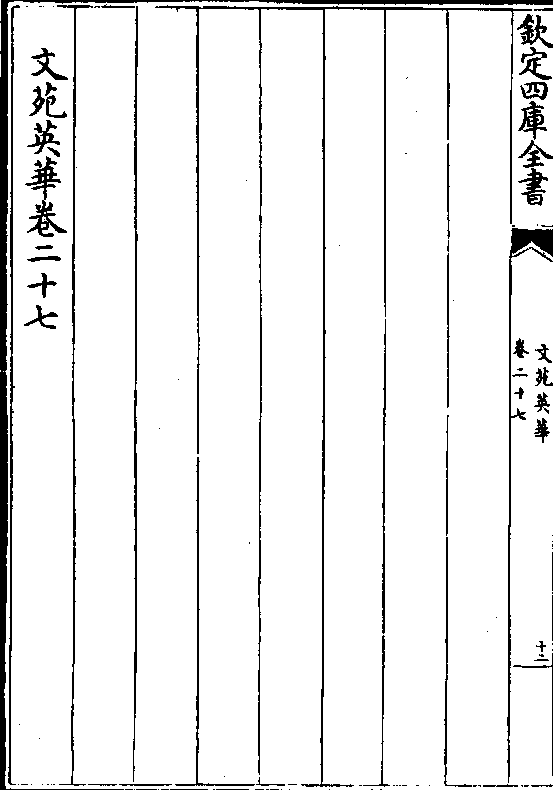 欽定四庫全書
文苑英華
卷二十七
十二
文苑英華卷二十七